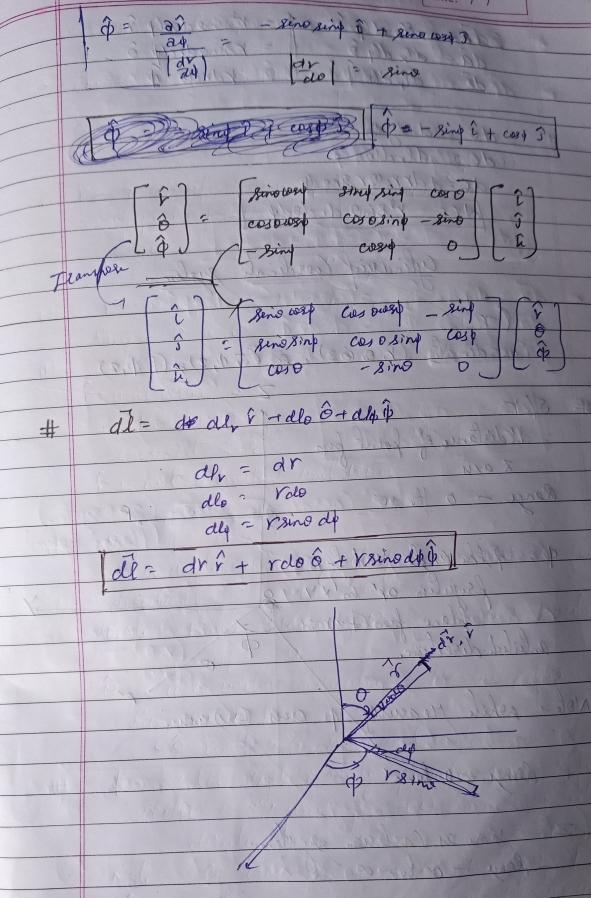 φ̂ = ∂r̂/∂φ / |dr/dφ| = - sinθ sinφ î + sinθ cosφ ĵ
|dr/dθ| = sinθ
φ̂ = - sinφ î + cosφ ĵ
[r̂ θ̂ φ̂] = [sinθcosφ sinφ sinφ cosθ; cosθcosφ cosθsinφ -sinθ; -sinφ cosφ 0] [î ĵ k̂]
Transpose
[î ĵ k̂] = [sinθcosφ cosθcosφ -sinφ; sinθsinφ cosθsinφ cosφ; cosθ -sinθ 0] [r̂ θ φ̂]
# dl⃗ = dlr r̂ + dlθ θ̂ + dlφ φ̂
dlr = dr
dlθ = rdθ
dlφ = rsinθ dφ
dl⃗ = dr r̂ + rdθ θ̂ + rsinθ dφ φ̂
dr⃗, r̂
r̂
θ
dφ
φ
rsinθ